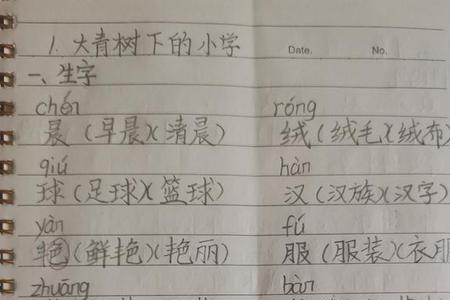 1. 大青树下的小学 Date. No.
一、生字
chén róng
晨（早晨）（清晨） 绒（绒毛）（绒布）
qiú hàn
球（足球）（篮球） 汉（汉族）（汉字）
yàn fú
艳（鲜艳）（艳丽） 服（服装）（衣服
zhuāng bàn